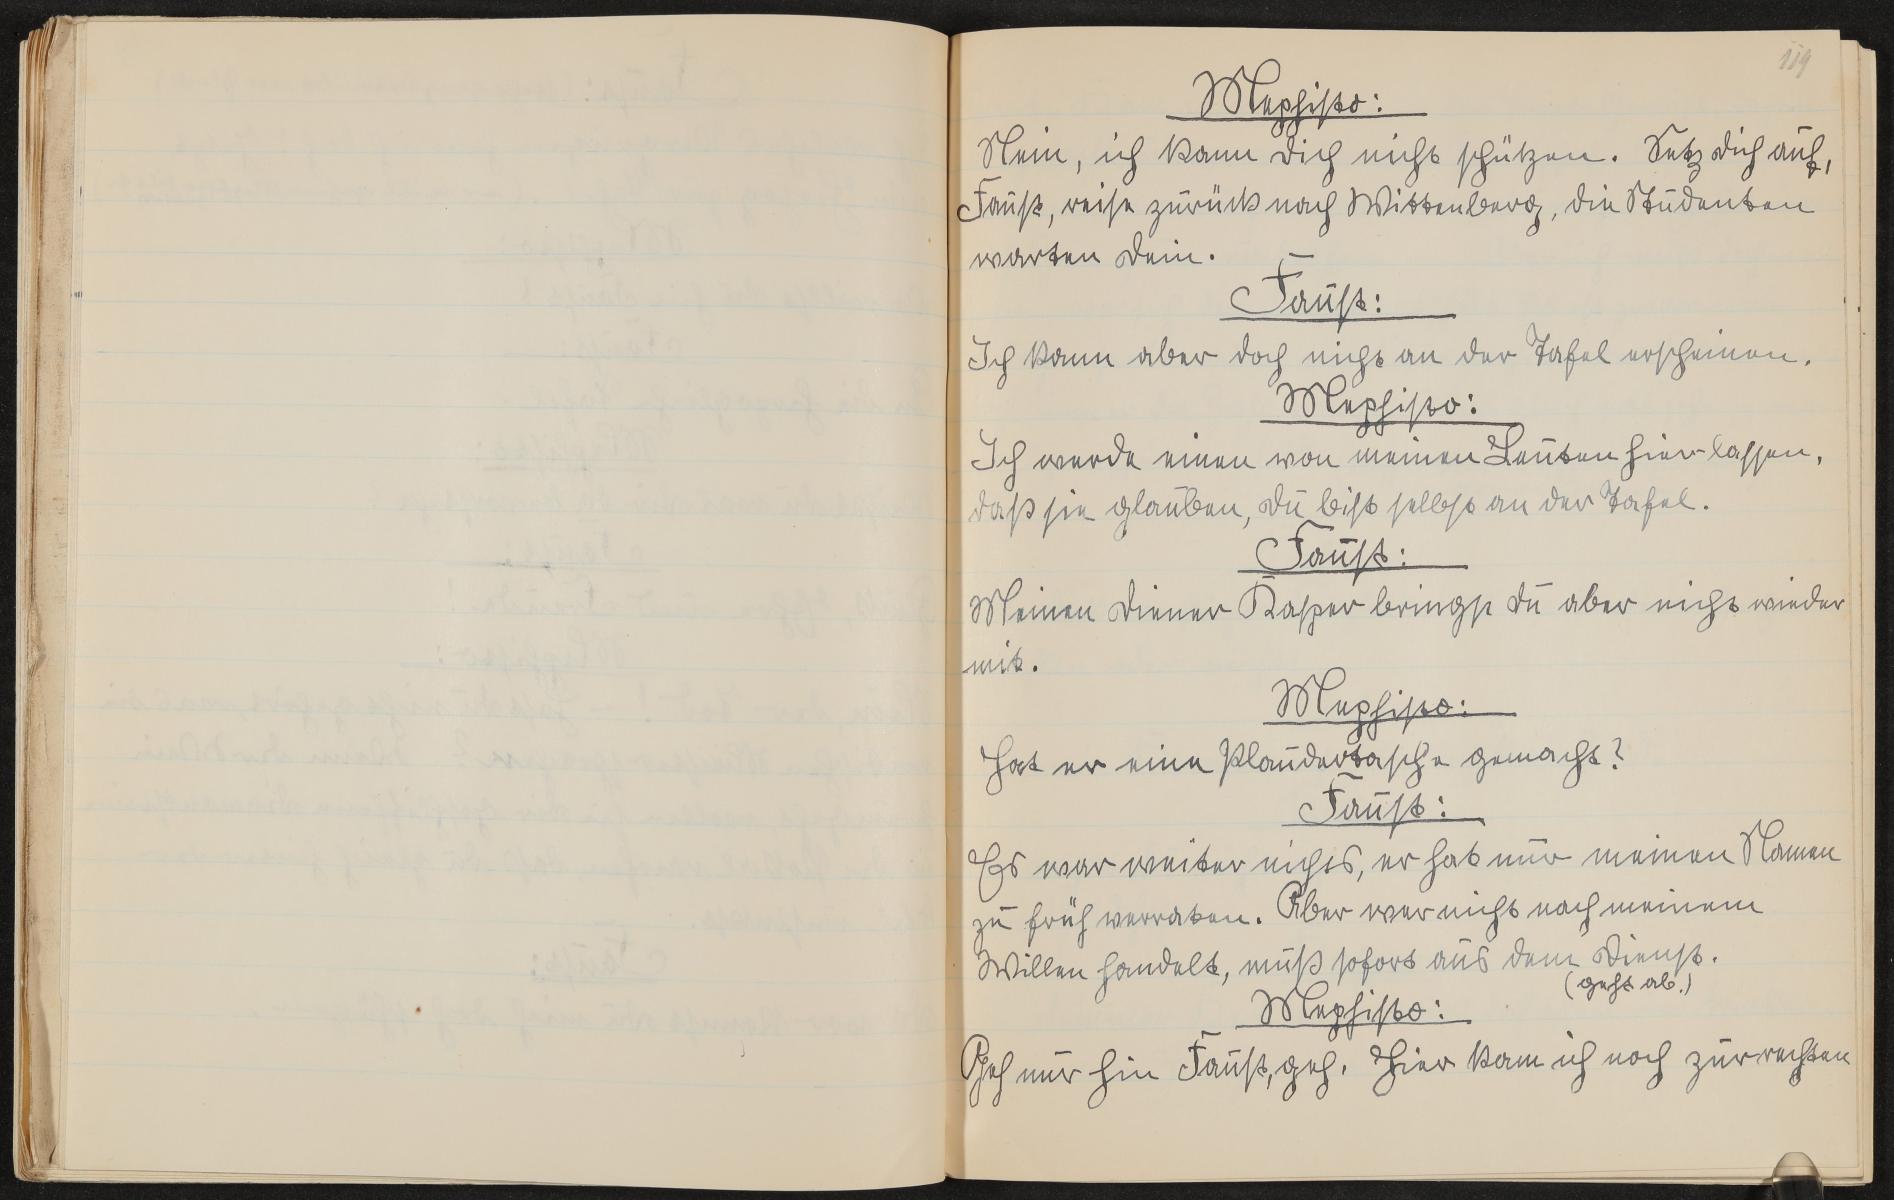 119
Mephisto:
Nein, ich kann dich nicht schützen. Setz dich auf,
Faust, reise zurück nach Wittenberg, die Studenten
warten dein.
Faust:
Ich kann aber doch nicht an der Tafel erscheinen.
Mephisto:
Ich werde einen von meinen Leuten hier lassen,
daß sie glauben, du bist selbst an der Tafel.
Faust:
Meinen Diener Kasper bringst du aber nicht wieder
mit.
Mephisto:
Hat er eine Plaudertasche gemacht?
Faust:
Es war weiter nichts, er hat nur meinen Namen
zu früh verraten. Aber wer nicht nach meinem
Willen handelt, muß sofort aus dem Dienst.
(geht ab.)
Mephisto:
Geh nur hin Faust, geh. Hier kam ich noch zur rechten